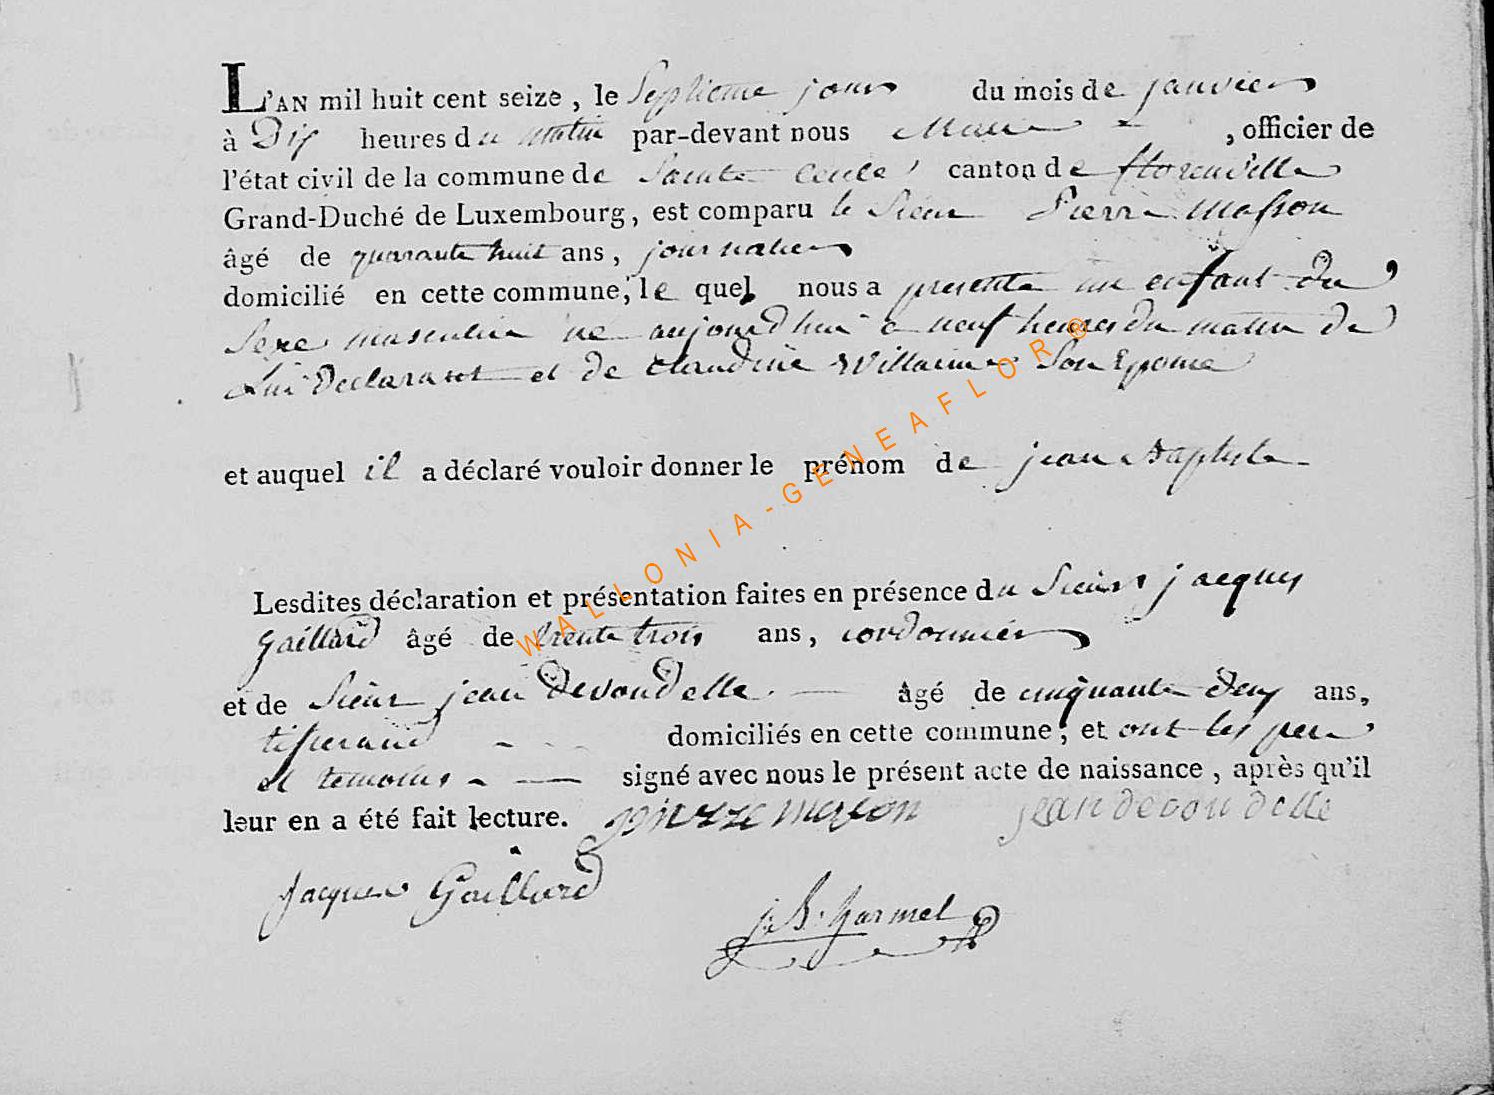 L'AN mil huit cent seize, le Septieme jour du mois de janvier
à Dix heures du matin par-devant nous Maire , officier de
l'état civil de la commune de Sainte Cecile, canton de florenville
Grand-Duché de Luxembourg, est comparu le Sieur Pierre Masson
âgé de quarante huit ans, journalier
domicilié en cette commune, le quel nous a presenté un enfant du
Sexe masculin né aujourd'hui a neuf heures du matin de
Lui Declarant et de Claudine Willaime Son Epouse
et auquel il a déclaré vouloir donner le prénom de jean Baptiste
Lesdites déclaration et présentation faites en présence du Sieur jacques
Gaillard âgé de trente trois ans, cordonnier
et de Sieur jean Devoudelle âgé de cinquante deux ans,
tisserand domiciliés en cette commune, et ont les pere
et temoins signé avec nous le présent acte de naissance, après qu'il
leur en a été fait lecture. pierre masson jean devoudelle
Jacques Gaillard
j. B. harmel
WALLONIA-GENEAFLOR®